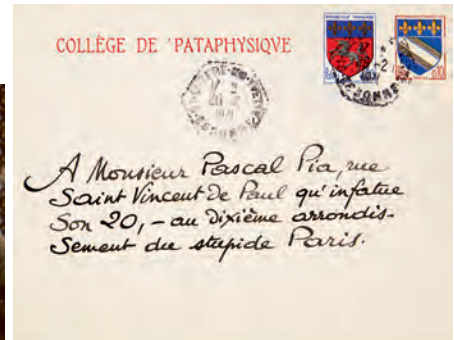 COLLÈGE DE 'PATAPHYSIQVE
A Monsieur Pascal Pia, rue
Saint Vincent de Paul qu'infatue
Son 20, – au dixième arrondis-
sement du stupide Paris.